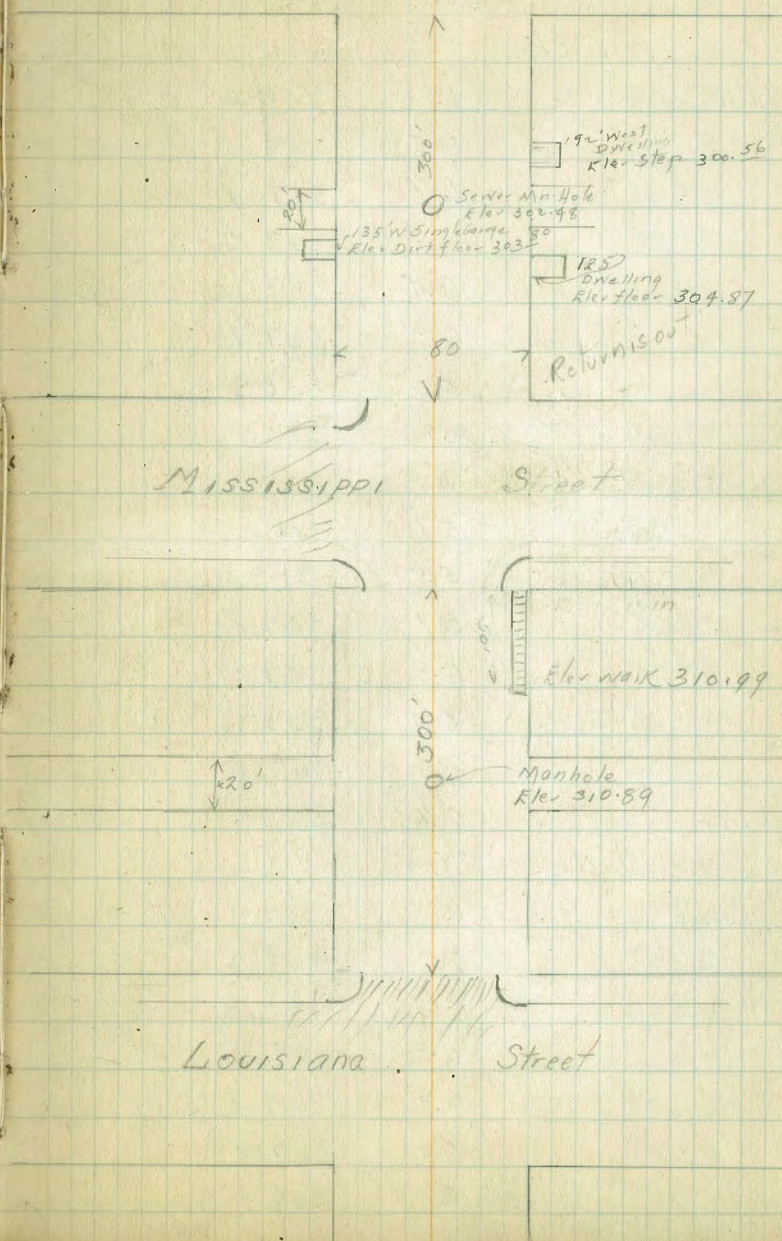 300'
192' West
Dwelling
Elev Step 300.56
20'
Sewer Mn-Hole
Elev 302.48
135' W Single garage
Elev Dirt floor 303.80
125
Dwelling
Elev floor 304.87
80
Return is out
Mississippi Street
Elev walk 310.99
300'
20'
Manhole
Elev 310.89
Louisiana Street